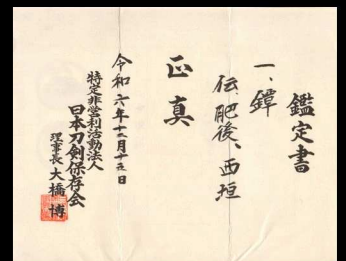 鑑定書
一、鐔
伝、肥後、西垣
正真
令和六年十二月十五日
特定非営利活動法人
日本刀剣保存会
理事長 大橋 博